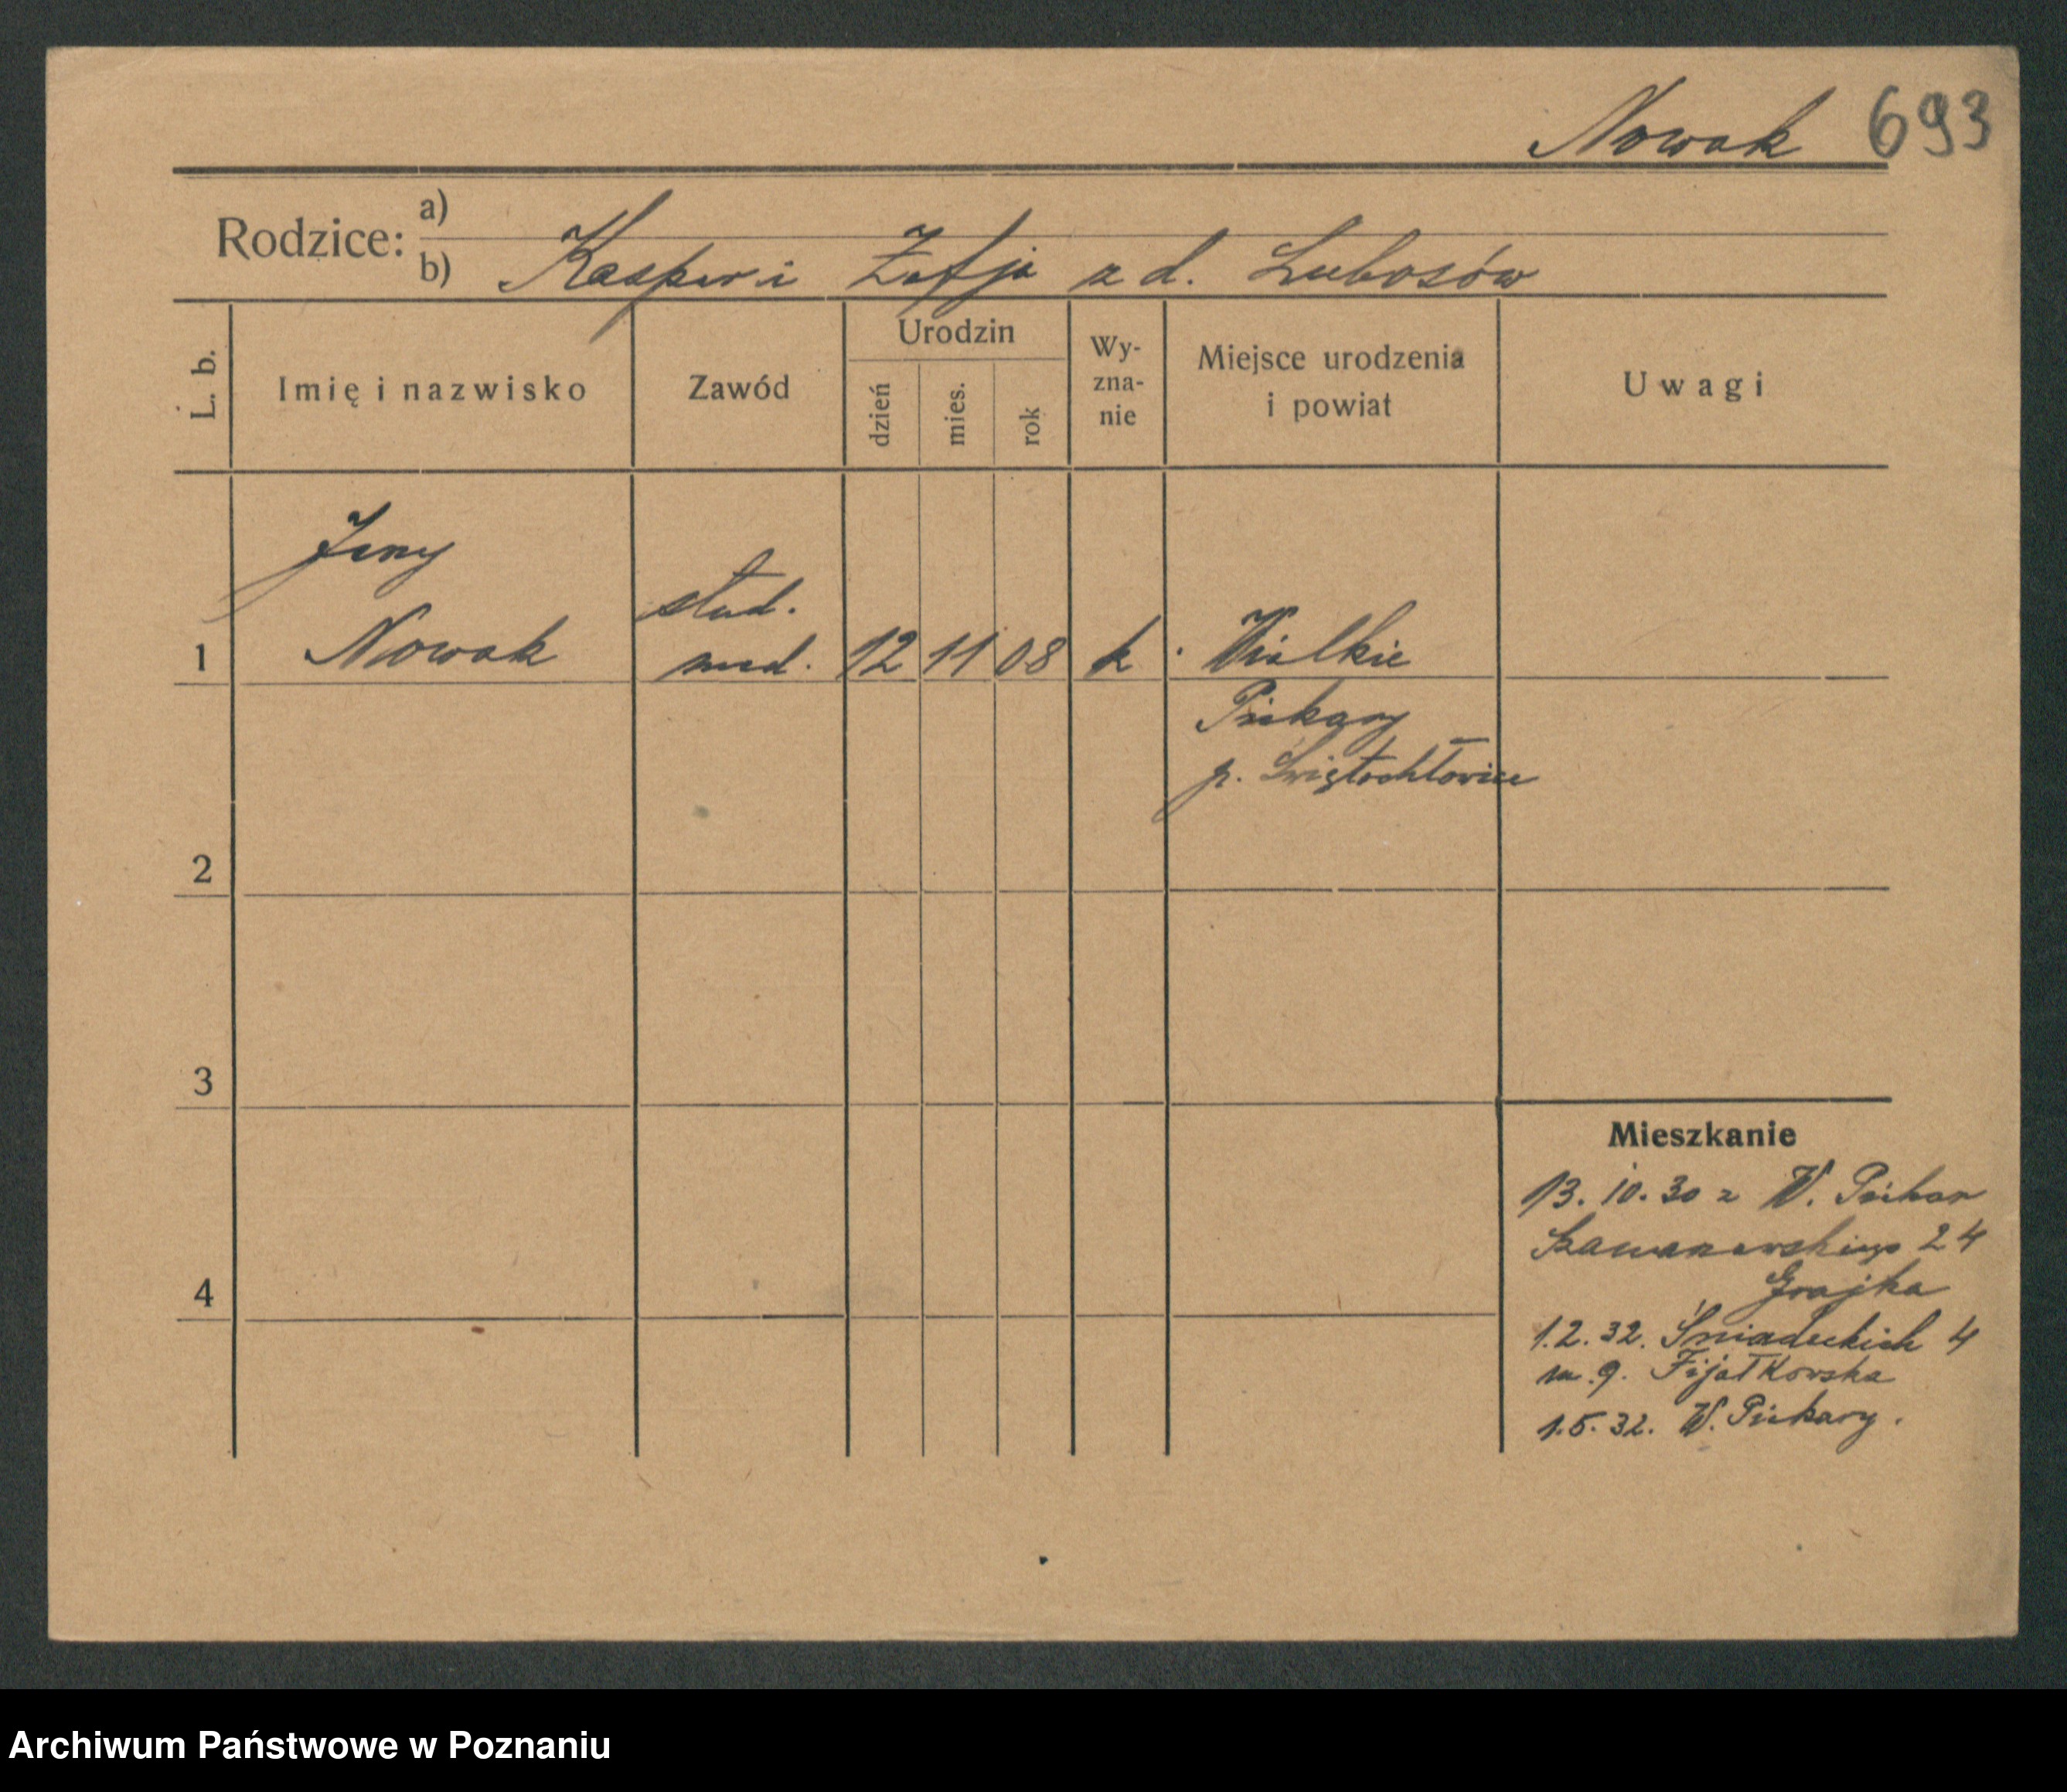 Nowak 693
Rodzice: a)
b) Kasper i Zofja z d. Lubosów
L. b.
Imię i nazwisko
Zawód
Urodzin
dzień
mies.
rok
Wy-
zna-
nie
Miejsce urodzenia
i powiat
Uwagi
Jerzy
Nowak
stud.
med.
1
12 11 08
k
Wielkie
Piekary
p. Świętochłowice
2
3
4
Mieszkanie
13. 10. 30 z W. Piekar
24
Grajka
1.2.32. Śniadeckich 4
m. 9. Fijałkowska
1.5.32. W. Piekary.
Archiwum Państwowe w Poznaniu